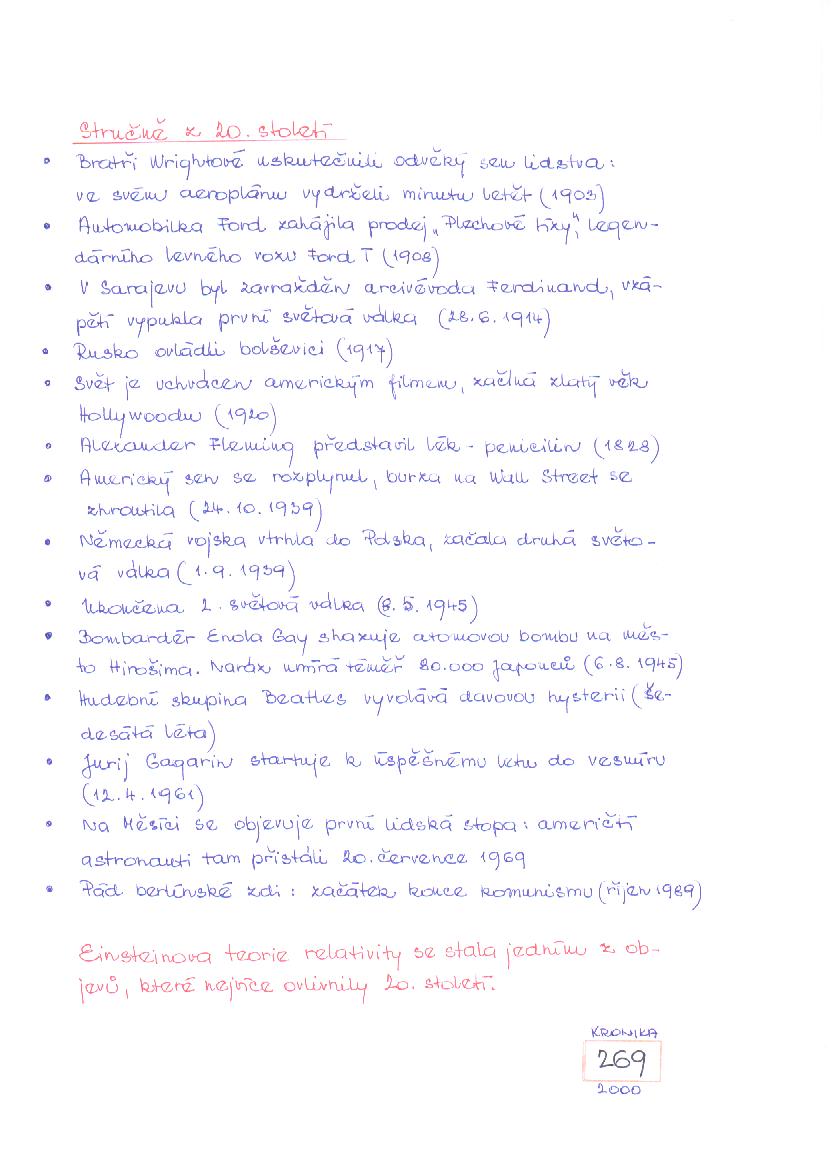 Stručně z 20. století
• Bratři Wrightové uskutečnili odvěký sen lidstva:
ve svém aeroplánu vydrželi minutu letět (1903)
• Automobilka Ford zahájila prodej „Plechové lízy", legen-
dárního levného vozu Ford T (1908)
• V Sarajevu byl zavražděn arcivévoda Ferdinand, vzá-
pětí vypukla první světová válka (28.6. 1914)
• Rusko ovládli bolševici (1917)
• Svět je uchvácen americkým filmem, začíná zlatý věk
Hollywoodu (1920)
• Alexander Fleming představil lék - penicilin (1828)
• Americký sen se rozplynul, burza na Wall Street se
zhroutila (24.10.1939)
• Německá vojska vtrhla do Polska, začala druhá světo-
vá válka (1.9.1939)
• Ukončena 2. světová válka (8.5.1945)
• Bombardér Enola Gay shazuje atomovou bombu na měs-
to Hirošima. Naráz umírá téměř 80.000 Japonců (6.8.1945)
• Hudební skupina Beatles vyvolává davovou hysterii (še-
desátá léta)
• Jurij Gagarin startuje k úspěšnému letu do vesmíru
(12.4.1961)
• Na Měsíci se objevuje první lidská stopa: američtí
astronauti tam přistáli 20. července 1969
• Pád berlínské zdi: začátek konce komunismu (říjen 1989)
Einsteinova teorie relativity se stala jedním z ob-
jevů, které nejvíce ovlivnily 20. století.
KRONIKA
269
2000